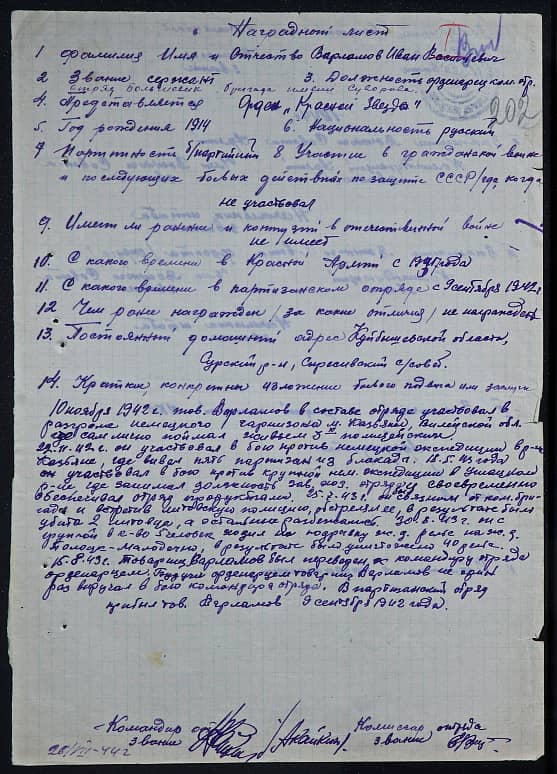 Наградной лист
1 Фамилия Имя и Отчество Варламов Иван Васильевич
2 Звание сержант 3. Должность ординарец ком. отр.
отряд Большевик бригада имени Суворова.
202
4. Представляется Орден „Красной Звезды"
5. Год рождения 1914 6. Национальность русский
7 Партийность б/партийный 8 Участие в гражданской войне
и последующих боевых действиях по защите СССР /где, когда
не участвовал
9. Имеет ли ранения и контузии в отечественной войне
не имеет
10. С какого времени в Красной Армии с года
11. С какого времени в партизанском отряде с 9 сентября 1942 г.
12 Чем ранее награжден /за какие отличия/ не награжден
13. Постоянный домашний адрес Куйбышевской области,
Сурский р-н, с/совб.
14. Краткие, конкретные изложение боевого подвига или заслуги
10 ноября 1942 г. тов. Варламов в составе отряда участвовал в
разгроме немецкого гарнизона м. Казьяны, Вилейской обл.
где сам лично поймал живьем 5 полицейских.
22.11.42 г. он участвовал в бою против немецкой экспедиции в р-не
Казьяне, где вывел пять партизан из блокады. 18.5.43 года
он участвовал в бою против крупной нем. экспедиции в Ушацком
р-не где занимал должность зав. хоз. отряда и своевременно
обеспечивал отряд продуктами. 25.7.43 г. связным от ком. бри-
гады и встретив литовскую полицию, обстрелял ее, в результате были
убиты 2 литовца, а остальные разбежались. 30.8.43 г. с
группой в к-во 5 человек ходил на подрывку ж.д. рельс на ж.д.
Полоцк-Молодечно, в результате было уничтожено 40 рельс.
15.8.43 г. Товарищ Варламов был переведен, к командиру отряда
ординарцем. Будучи ординарцем товарищ Варламов не один
раз выручал в бою командира отряда. В партизанский отряд
прибыл тов. Варламов 9 сентября 1942 года.
Командир отр. Комиссар отряда
звание /Акайкин/ звание
20/VII-44 г.